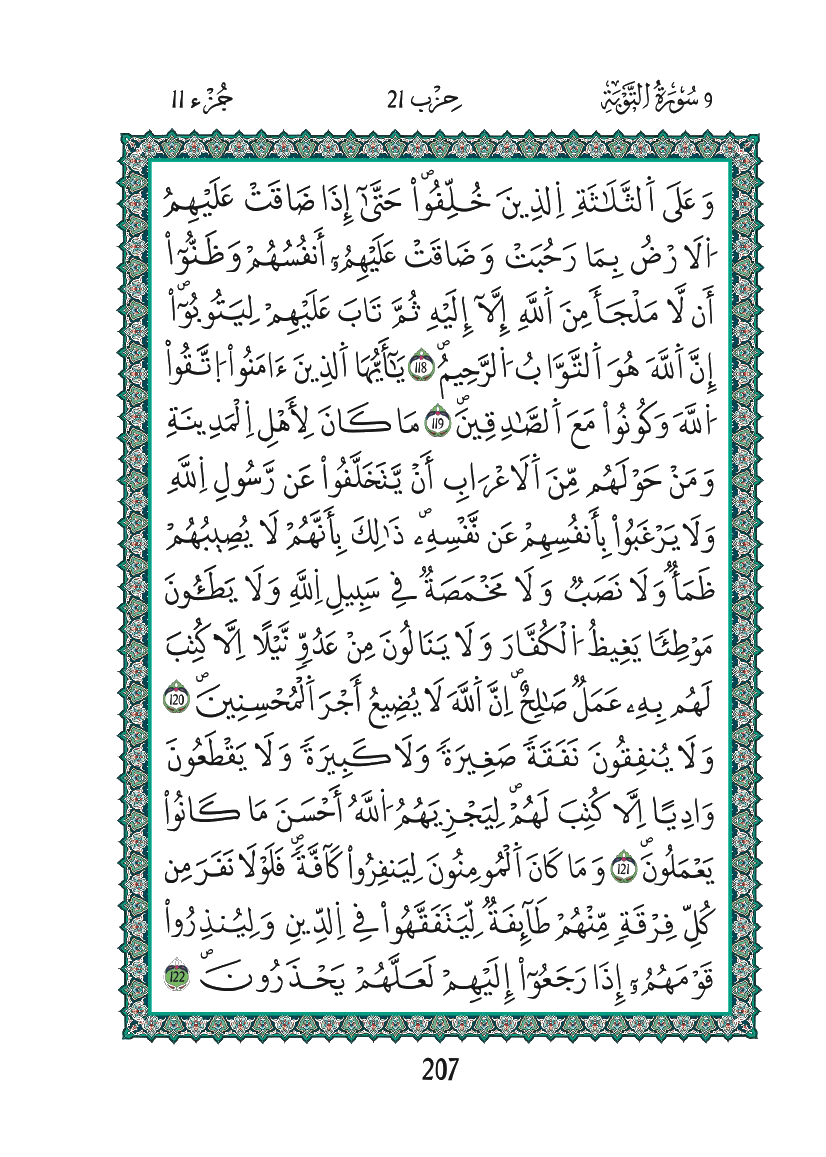 9 سُورَةُ التَّوْبَةِ حِزْب 21 جُزْء 11
وَعَلَى اَ۬لثَّلَٰثَةِ اِ۬لذِينَ خُلِّفُواْۖ حَتَّىٰٓ إِذَا ضَاقَتْ عَلَيْهِمُ
اُ۬لَارْضُ بِمَا رَحُبَتْ وَضَاقَتْ عَلَيْهِمُۥٓ أَنفُسُهُمْ وَظَنُّوٓاْ
أَن لَّا مَلْجَأَ مِنَ اَ۬للَّهِ إِلَّآ إِلَيْهِ ثُمَّ تَابَ عَلَيْهِمْ لِيَتُوبُوٓاْۖ
إِنَّ اَ۬للَّهَ هُوَ اَ۬لتَّوَّابُ اُ۬لرَّحِيمُۖ 118 يَٰٓأَيُّهَا اَ۬لذِينَ ءَامَنُواْ اُ۪تَّقُواْ
اُ۬للَّهَ وَكُونُواْ مَعَ اَ۬لصَّٰدِقِينَۖ 119 مَا كَانَ لِأَهْلِ اِ۬لْمَدِينَةِ
وَمَنْ حَوْلَهُم مِّنَ اَ۬لَاعْرَابِ أَنْ يَّتَخَلَّفُواْ عَن رَّسُولِ اِ۬للَّهِ
وَلَا يَرْغَبُواْ بِأَنفُسِهِمْ عَن نَّفْسِهِۦۖ ذَٰلِكَ بِأَنَّهُمْ لَا يُصِيبُهُمْ
ظَمَأٌ وَلَا نَصَبٌ وَلَا مَخْمَصَةٌ فِے سَبِيلِ اِ۬للَّهِ وَلَا يَطَـُٔونَ
مَوْطِئاً يَغِيظُ اُ۬لْكُفَّارَ وَلَا يَنَالُونَ مِنْ عَدُوٍّ نَّيْلًا اِلَّا كُتِبَ
لَهُم بِهِۦ عَمَلٌ صَٰلِحٌۖ اِنَّ اَ۬للَّهَ لَا يُضِيعُ أَجْرَ اَ۬لْمُحْسِنِينَۖ 120
وَلَا يُنفِقُونَ نَفَقَةً صَغِيرَةً وَلَا كَبِيرَةً وَلَا يَقْطَعُونَ
وَادِياً اِلَّا كُتِبَ لَهُمْۖ لِيَجْزِيَهُمُ اُ۬للَّهُ أَحْسَنَ مَا كَانُواْ
يَعْمَلُونَۖ 121 وَمَا كَانَ اَ۬لْمُومِنُونَ لِيَنفِرُواْ كَآفَّةًۖ فَلَوْلَا نَفَرَ مِن
كُلِّ فِرْقَةٍ مِّنْهُمْ طَآئِفَةٌ لِّيَتَفَقَّهُواْ فِے اِ۬لدِّينِ وَلِيُنذِرُواْ
قَوْمَهُمُۥٓ إِذَا رَجَعُوٓاْ إِلَيْهِمْ لَعَلَّهُمْ يَحْذَرُونَۖ 122
207